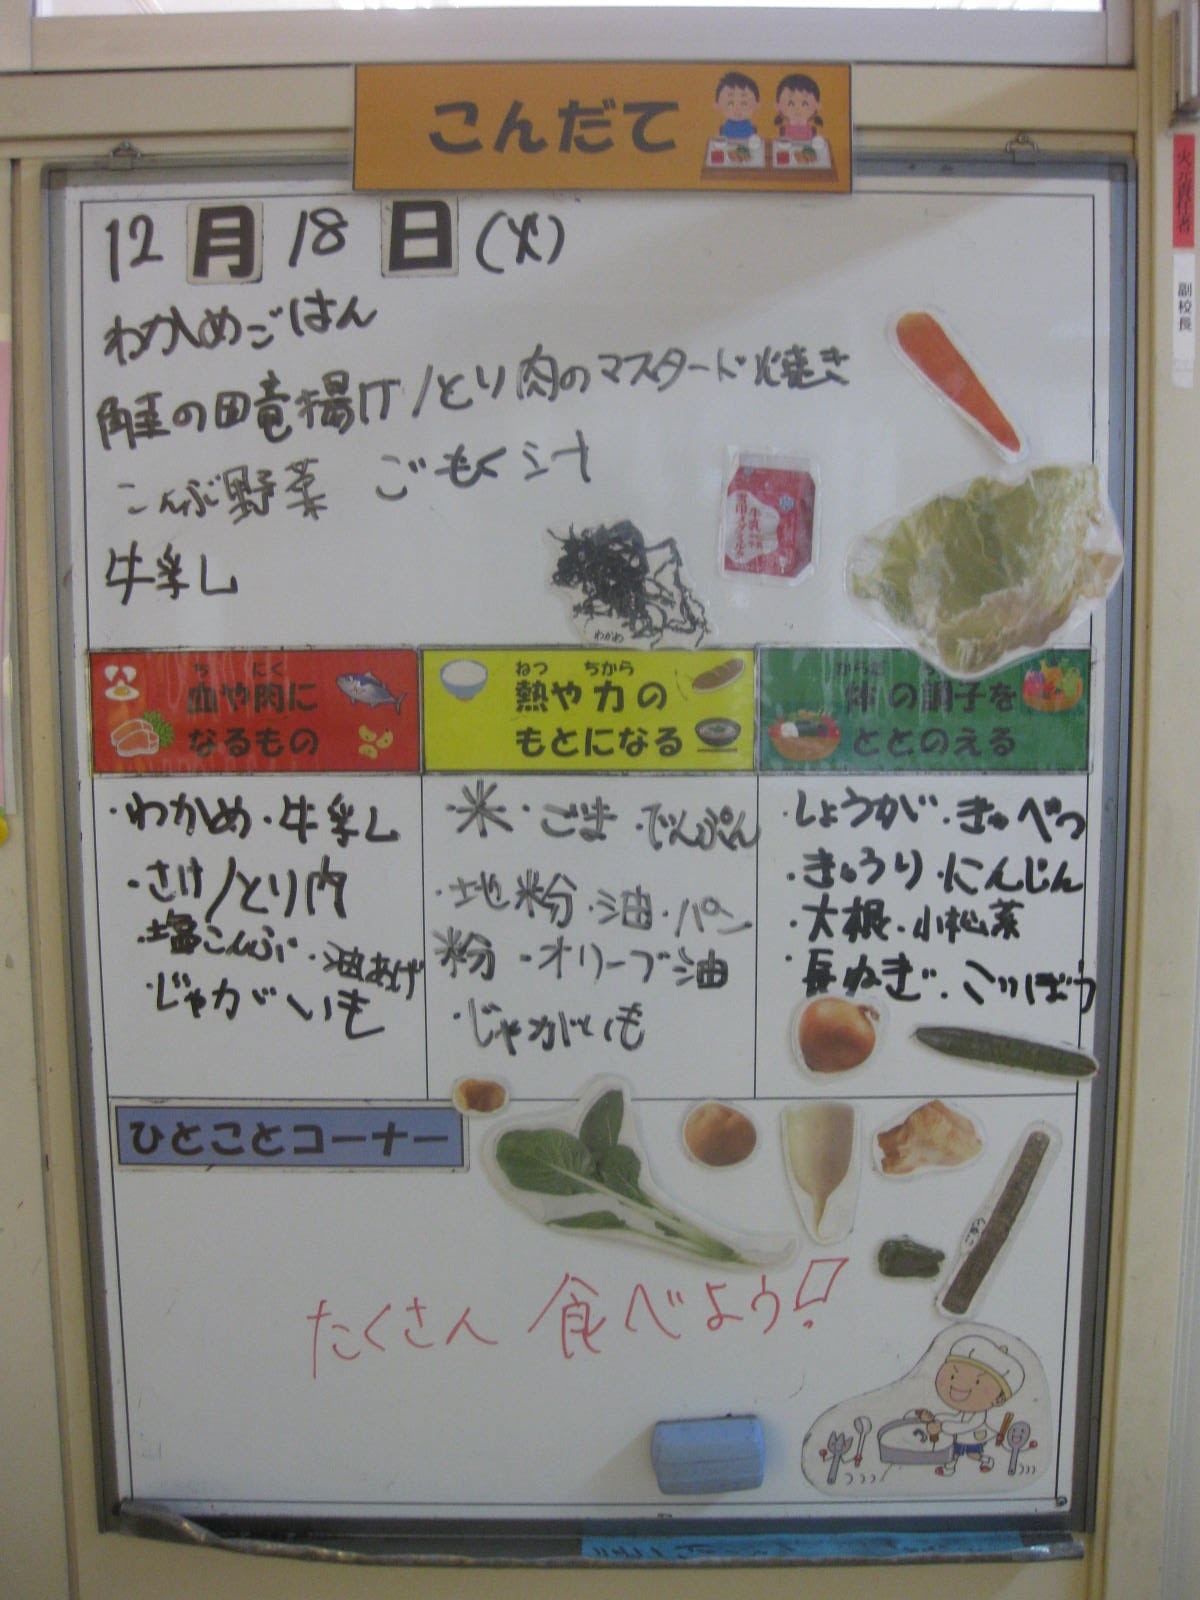 こんだて
12月18日(火)
わかめごはん
鮭の田竜揚げ/とり肉のマスタード焼き
こんぶ野菜 ごもく汁
牛乳
わかめ
牛乳
ち にく
血や肉に
なるもの
ねつ ちから
熱や力の
もとになる
からだ
体の調子を
ととのえる
・わかめ・牛乳
・さけ/とり肉
・塩こんぶ・油あげ
・じゃがいも
・米・ごま・でんぷん
・地粉・油・パン
粉・オリーブ油
・じゃがいも
・しょうが・きゃべつ
・きゅうり・にんじん
・大根・小松菜
・長ねぎ・ごぼう
ひとことコーナー
たくさん食べよう!
火元責任者
副校長